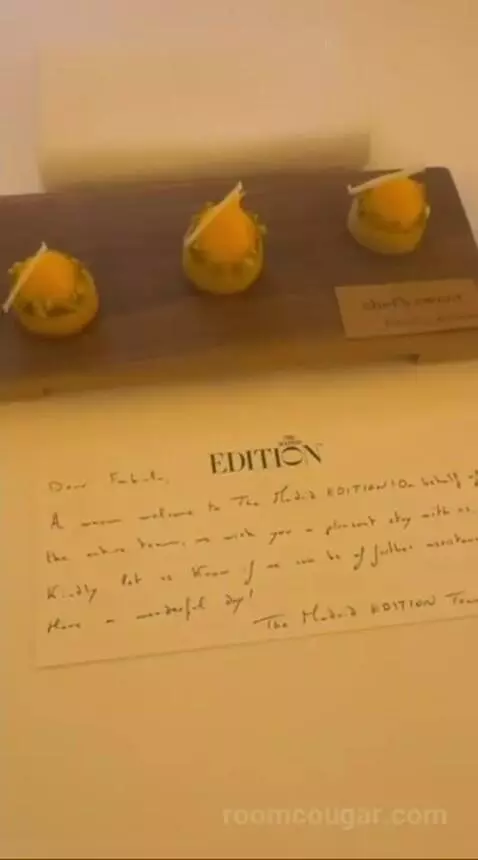 chef's
THE MADRID
EDITION
Dear
A warm welcome to The Madrid EDITION! On behalf of
the entire team, we wish you a pleasant stay with us.
Kindly let us know if we can be of further assistance
Have a wonderful day!
The Madrid EDITION Team
roomcougar.com